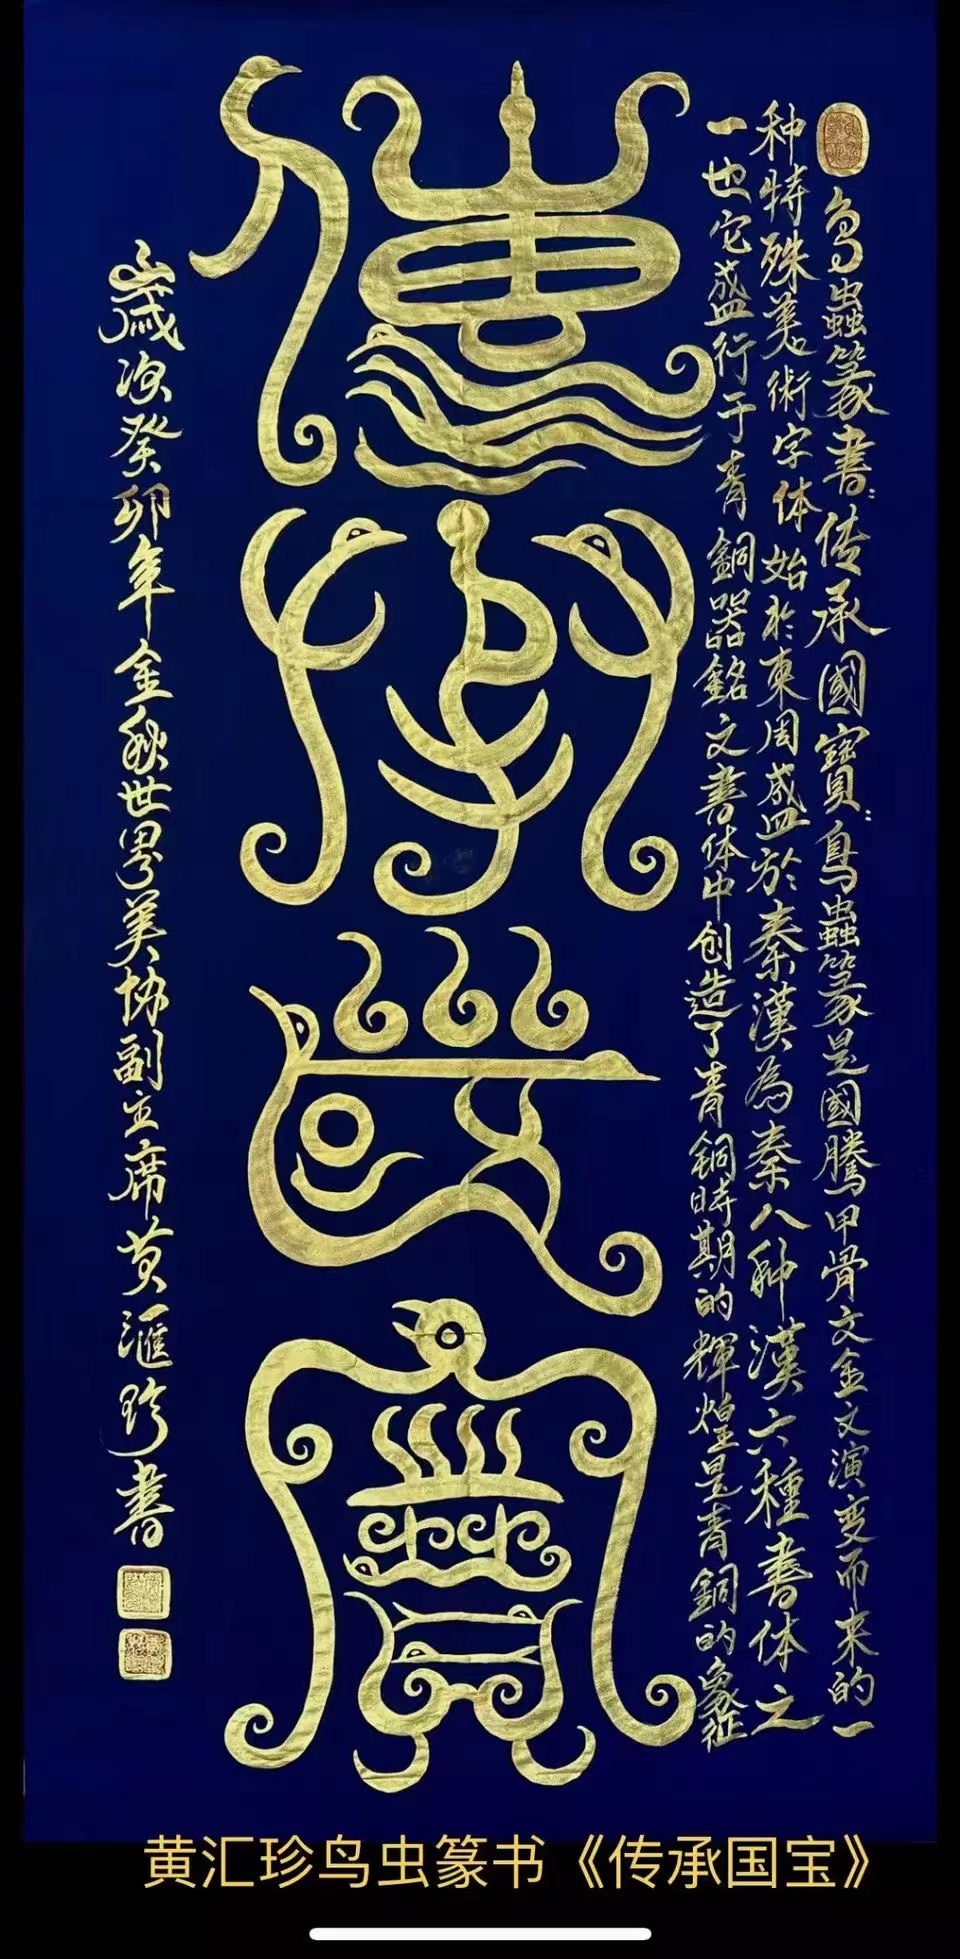 鸟蟲篆書：传承國寶：鳥蟲篆是國騰甲骨文金文演变而来的一
种特殊美术術字体始於東周盛於秦漢為秦八种漢六種書体之
一也它盛行于青銅器銘文書体中创造了青铜時期的輝煌是青銅的象征
傳承國寶
歲次癸卯年金秋世界美协副主席黄滙珍書
黄汇珍鸟虫篆书《传承国宝》